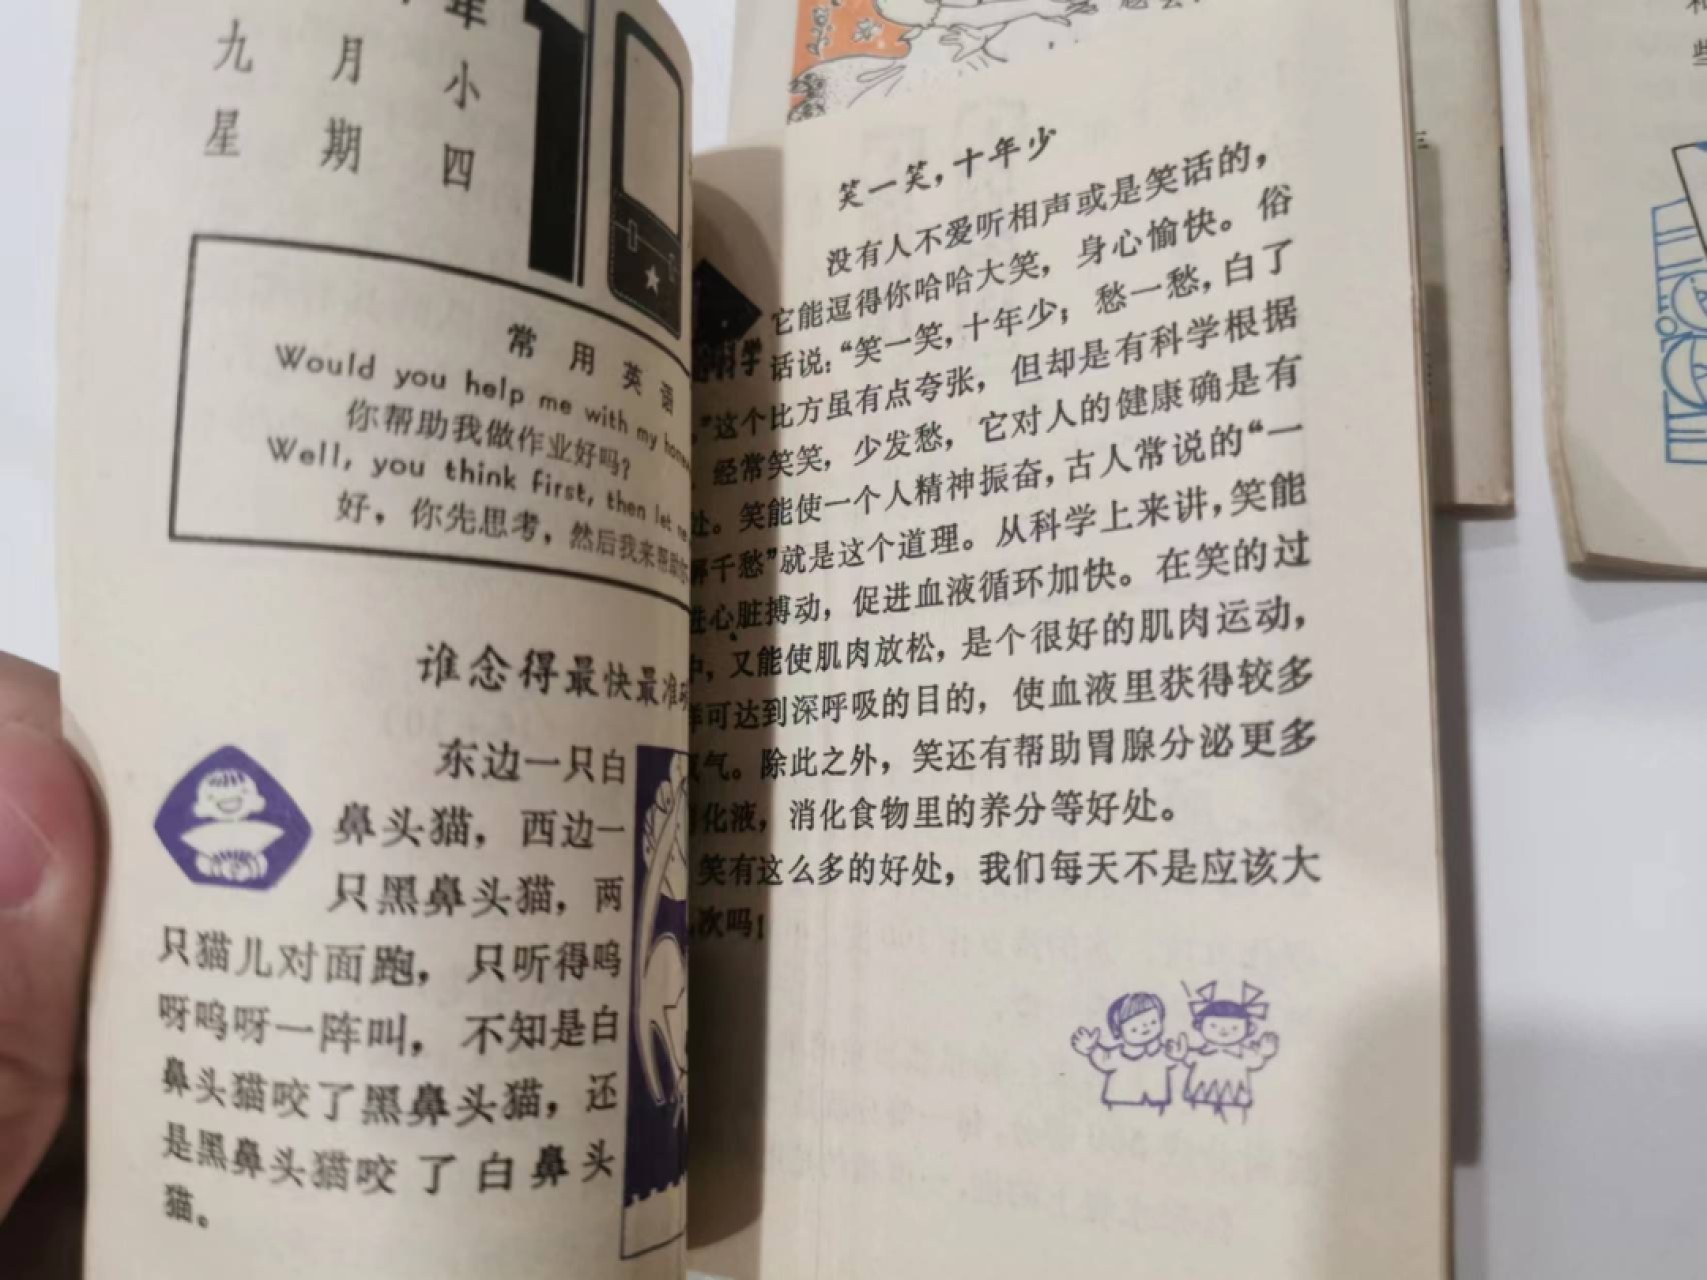 年
九 月 小
星 期 四
常用英语
Would you help me with my
你帮助我做作业好吗?
Well, you think first, then let me
好，你先思考，然后我来帮助你
谁念得最快最准确
东边一只白
鼻头猫，西边一
只黑鼻头猫，两
只猫儿对面跑，只听得呜
呀呜呀一阵叫，不知是白
鼻头猫咬了黑鼻头猫，还
是黑鼻头猫咬了白鼻头
猫。
笑一笑，十年少
没有人不爱听相声或是笑话的，
它能逗得你哈哈大笑，身心愉快。俗
科学
话说：“笑一笑，十年少；愁一愁，白了
”这个比方虽有点夸张，但却是有科学根据
经常笑笑，少发愁，它对人的健康确是有
处。笑能使一个人精神振奋，古人常说的“一
解千愁”就是这个道理。从科学上来讲，笑能
进心脏搏动，促进血液循环加快。在笑的过
中，又能使肌肉放松，是个很好的肌肉运动，
可达到深呼吸的目的，使血液里获得较多
氧气。除此之外，笑还有帮助胃腺分泌更多
化液，消化食物里的养分等好处。
笑有这么多的好处，我们每天不是应该大
次吗！
些